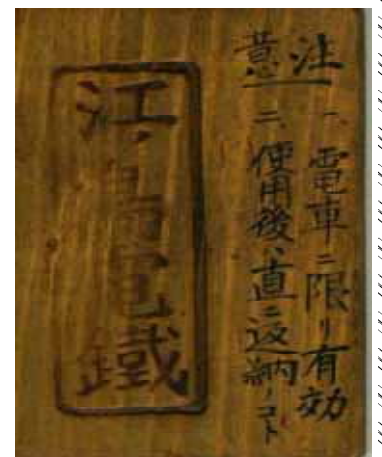 注意
一、電車ニ限リ有効
二、使用後ハ直ニ返納ノコト
江ノ島電鐵